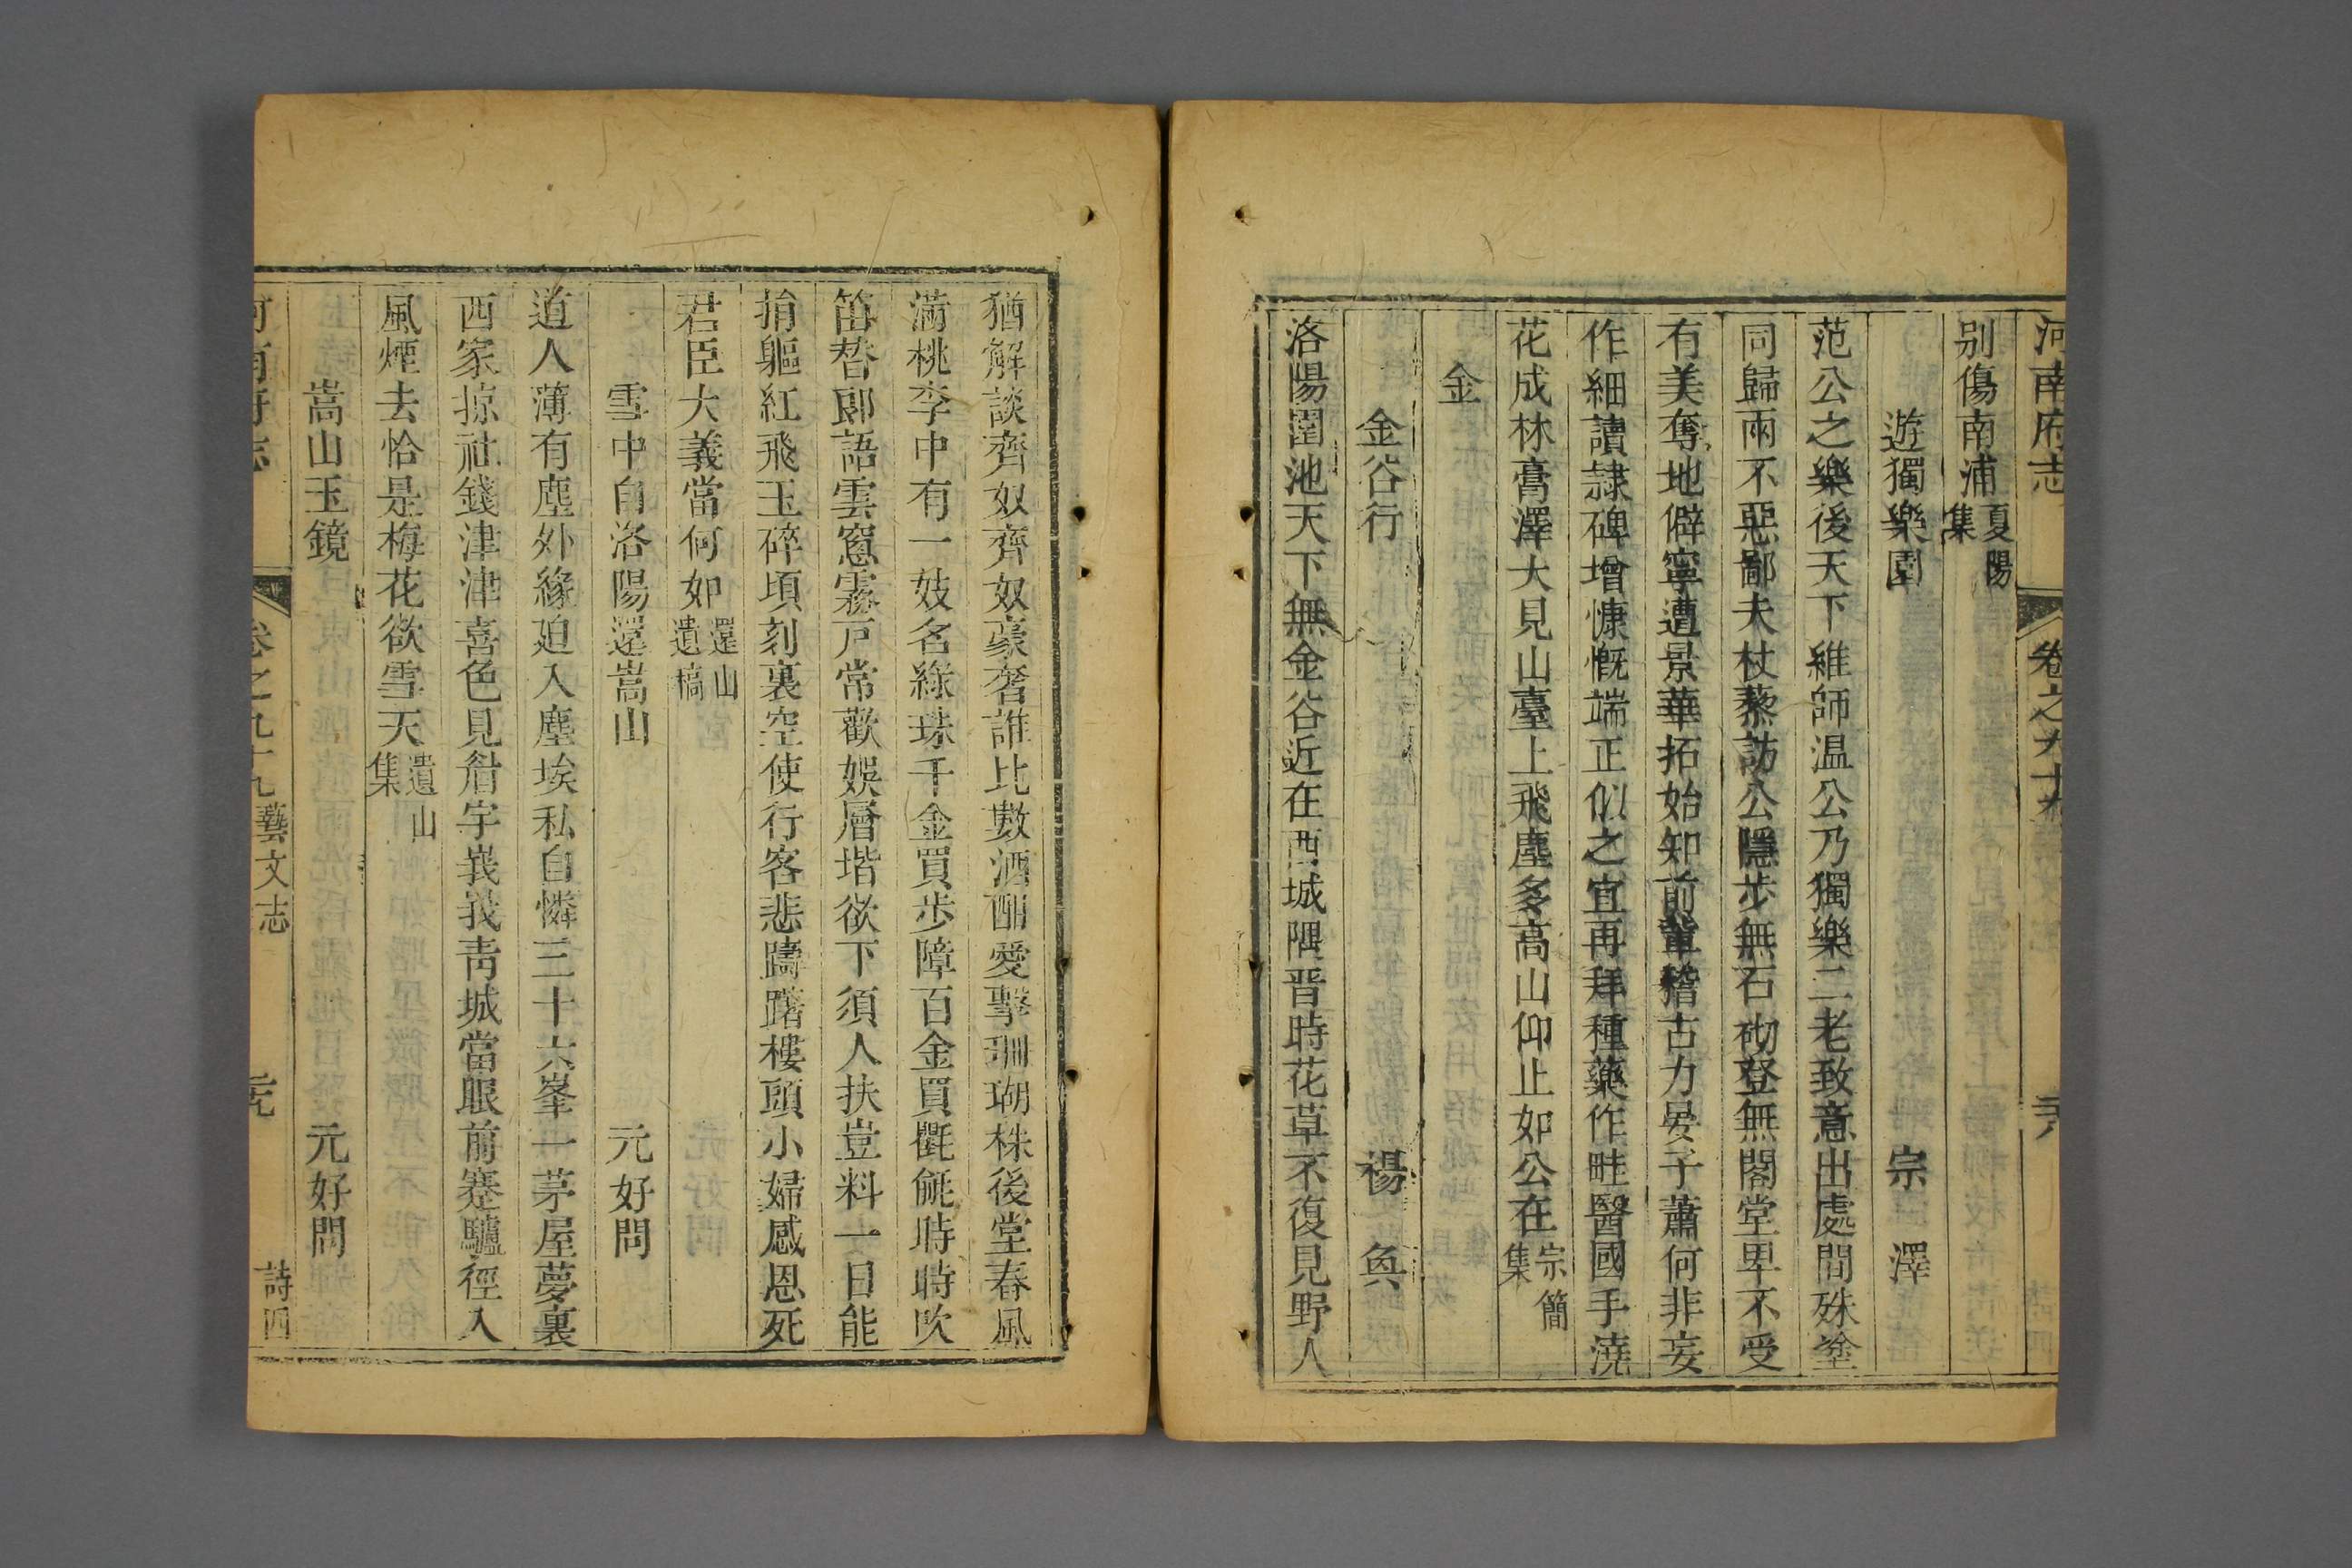 河南府志
卷之九十九
别傷南浦夏陽集
遊獨樂園 宗澤
范公之樂後天下維師温公乃獨樂二老致意出處間殊塗
同歸兩不惡鄙夫杖藜訪公隱步無石砌登無閣堂卑不受
有美奪地僻寧遭景華拓始知前輩稽古力晏子蕭何非妄
作細讀隷碑增慷慨端正似之宜再拜種藥作畦醫國手澆
花成林膏澤大見山臺上飛塵多高山仰止如公在宗簡集
金
金谷行 楊奐
洛陽園池天下無金谷近在西城隅晋時花草不復見野人
猶解談齊奴齊奴豪奢誰比數酒酣愛擊珊瑚株後堂春風
滿桃李中有一妓名綠珠千金買步障百金買氍毹時時吹
笛替郎語雲窓霧戸常歡娛層堦欲下須人扶豈料一日能
捐軀紅飛玉碎頃刻裏空使行客悲躊躇樓頭小婦感恩死
君臣大義當何如還山遺稿
雪中自洛陽還嵩山 元好問
道人薄有塵外緣廹入塵埃私自憐三十六峯一茅屋夢裏
西家掠社錢津津喜色見眉宇峩峩青城當眼前蹇驢徑入
風煙去恰是梅花欲雪天遺山集
嵩山玉鏡 元好問
河南府志
卷之九十九 藝文志
詩四